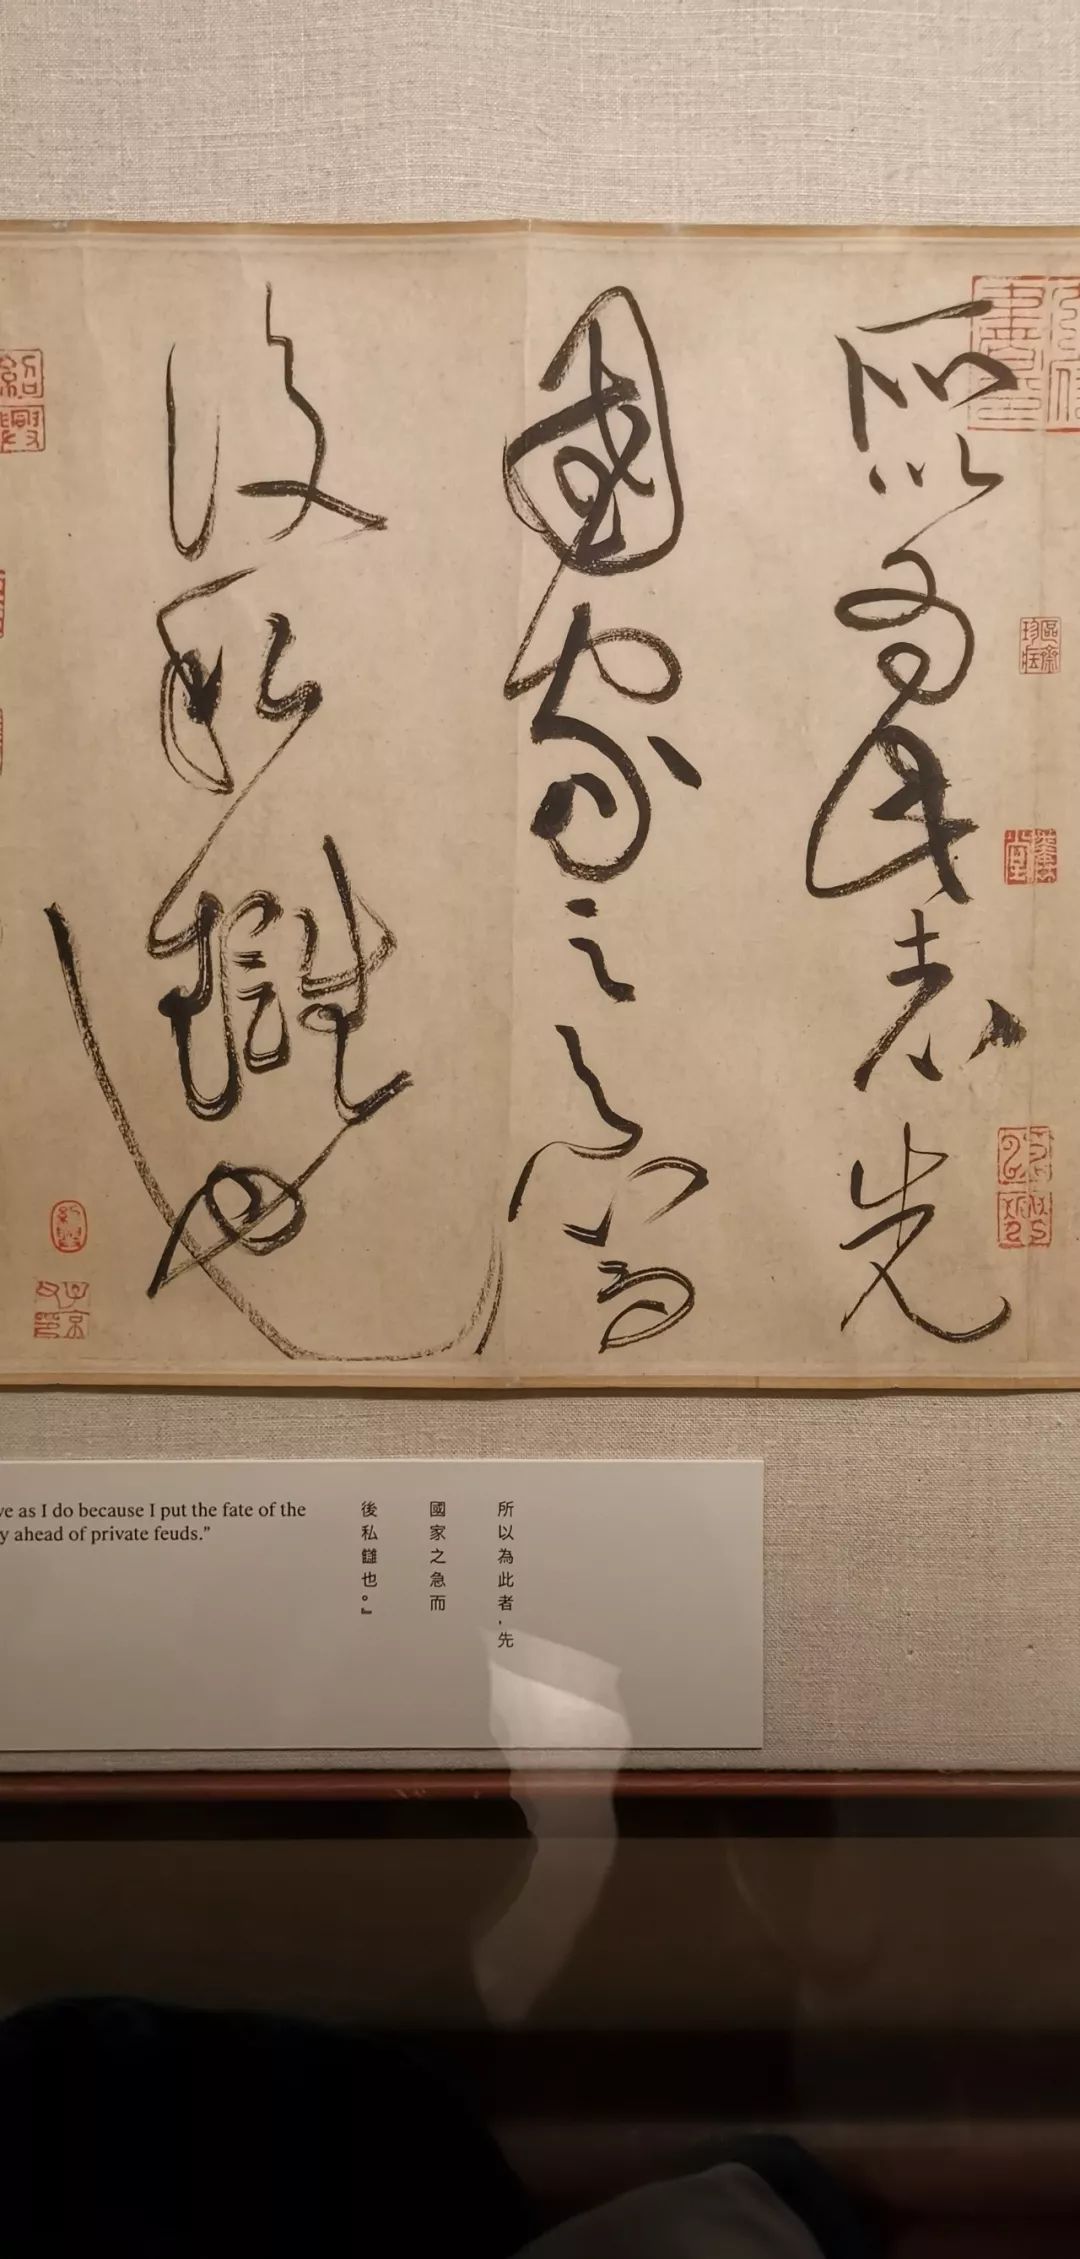 所以為此者先
國家之急而
後私讎也
紹興
所以為此者,先
國家之急而
後私讎也。』
ve as I do because I put the fate of the
y ahead of private feuds.”